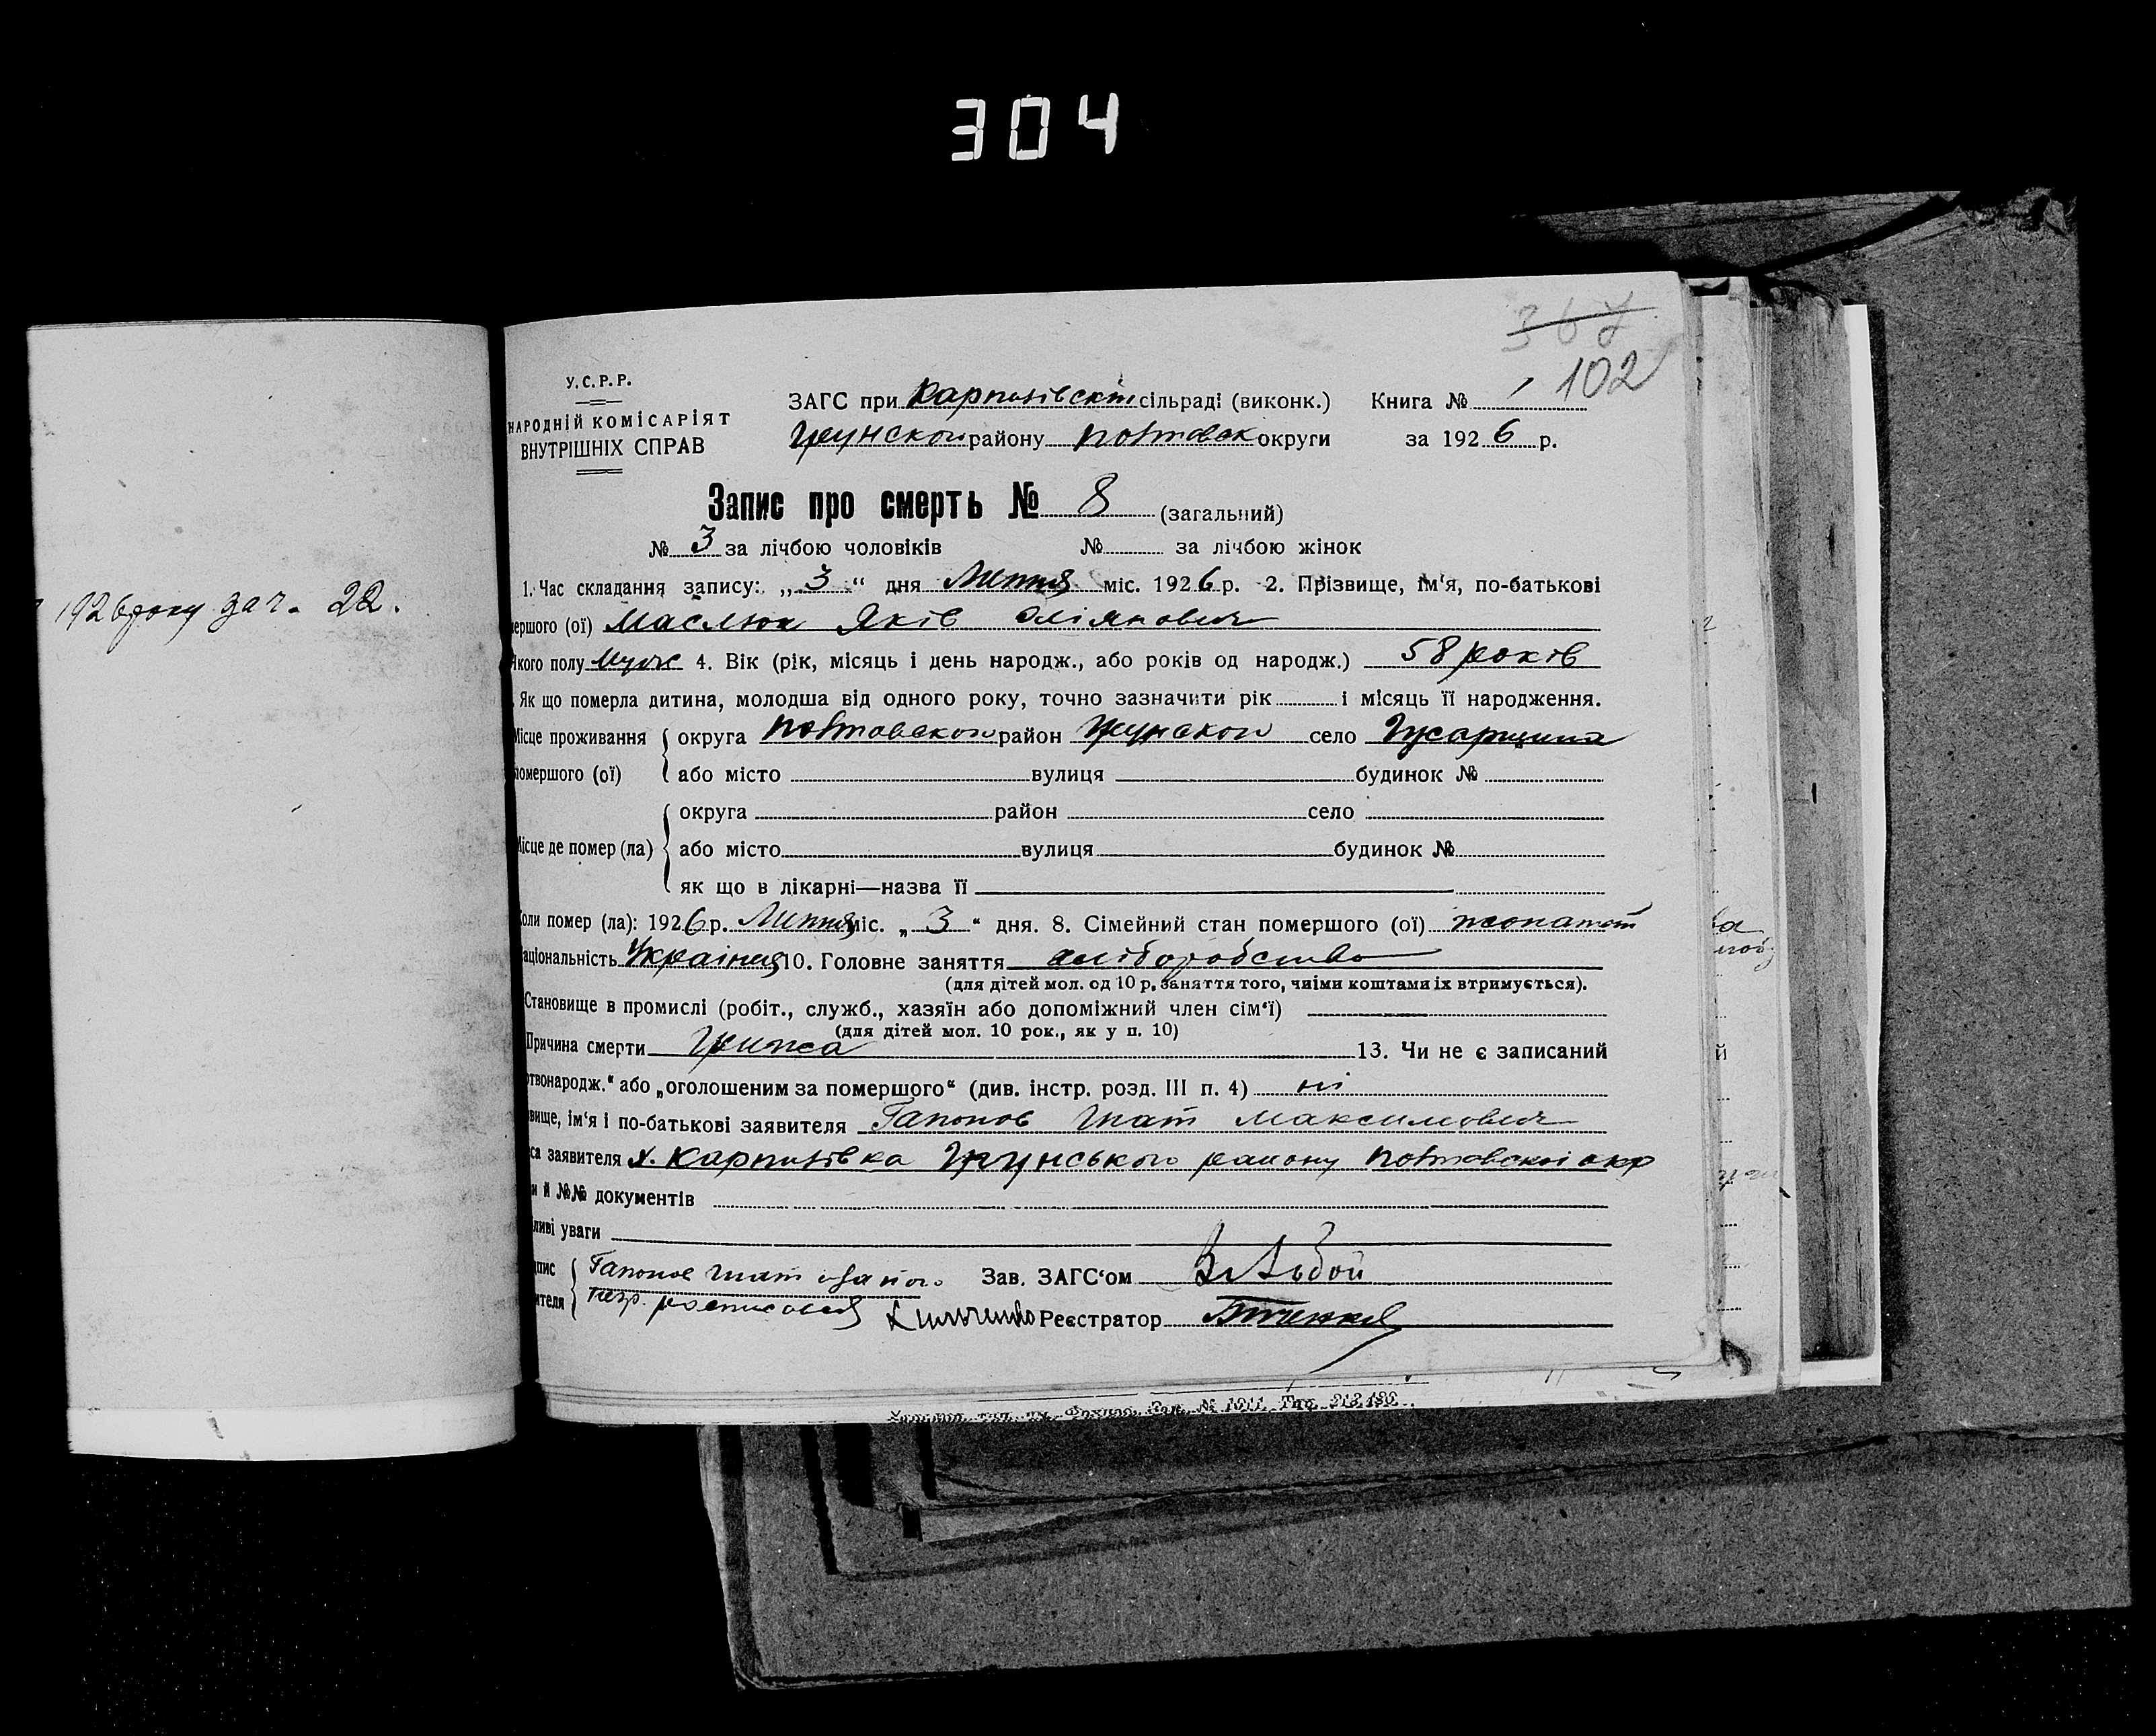 304
367
102
У.С.Р.Р.
НАРОДНІЙ КОМІСАРІЯТ
ВНУТРІШНІХ СПРАВ
ЗАГС при Карпилівскій сільраді (виконк.) Книга № 1
району Полтавск округи за 1926 р.
Запис про смерть № 8 (загальний)
№ 3 за лічбою чоловіків № за лічбою жінок
1. Час складання запису: „3“ дня Липня міс. 1926 р. 2. Прізвище, ім‘я, по-батькові
мершого (ої) Маслюк Яків
Якого полу муж 4. Вік (рік, місяць і день народж., або років од народж.) 58 років
Як що померла дитина, молодша від одного року, точно зазначити рік і місяць її народження.
Місце проживання округа Полтавского район село Гусарщина
помершого (ої) або місто вулиця будинок №
округа район село
Місце де помер (ла) або місто вулиця будинок №
як що в лікарні—назва її
коли помер (ла): 1926 р. Липня міс. „3“ дня. 8. Сімейний стан помершого (ої) жонатий
аціональність 10. Головне заняття хліборобство
(для дітей мол. од 10 р, заняття того, чиїми коштами їх втримується).
Становище в промислі (робіт., служб., хазяїн або допоміжний член сім‘ї)
(для дітей мол. 10 рок., як у п. 10)
Причина смерти Грижа 13. Чи не є записаний
ртвонародж.“ або „оголошеним за помершого“ (див. інстр. розд. III п. 4) ні
звище, ім‘я і по-батькові заявителя Гапонов Гнат Максимович
са заявителя х. Карпилівка району Полтавскоі окр
и й №№ документів
ливі уваги
дпис Гапонов Гнат Зав. ЗАГС‘ом
ителя росписався Реєстратор
1926 року за ч. 22.